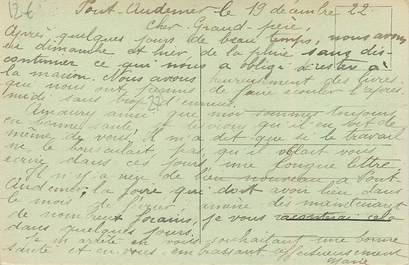 126
Pont-Audemer le 19 décembre 22
Cher Grand-père
Après quelques jours de beau temps, nous avons
eu dimanche et hier de la pluie sans dis-
continuer ce qui nous a obligé d'rester à
la maison. Nous avons heureusement des livres
qui nous ont permis de faire écouler l'après
midi sans trop d'ennui.
ainsi que moi sommes toujours
en bonne santé, je crois qu'il en est de
même de vous. Il m'a dit que si le travail
ne le bousculait pas, qu'il allait vous
écrire dans ces jours, une longue lettre
Il n'y a rien de bien nouveau à Pont
Audemer; la foire qui doit avoir lieu dans
le mois de amène dès maintenant
de nombreux forains, je vous raconterai cela
dans quelques jours.
Je m'arrête en vous souhaitant une bonne
santé et en vous embrassant affectueusement